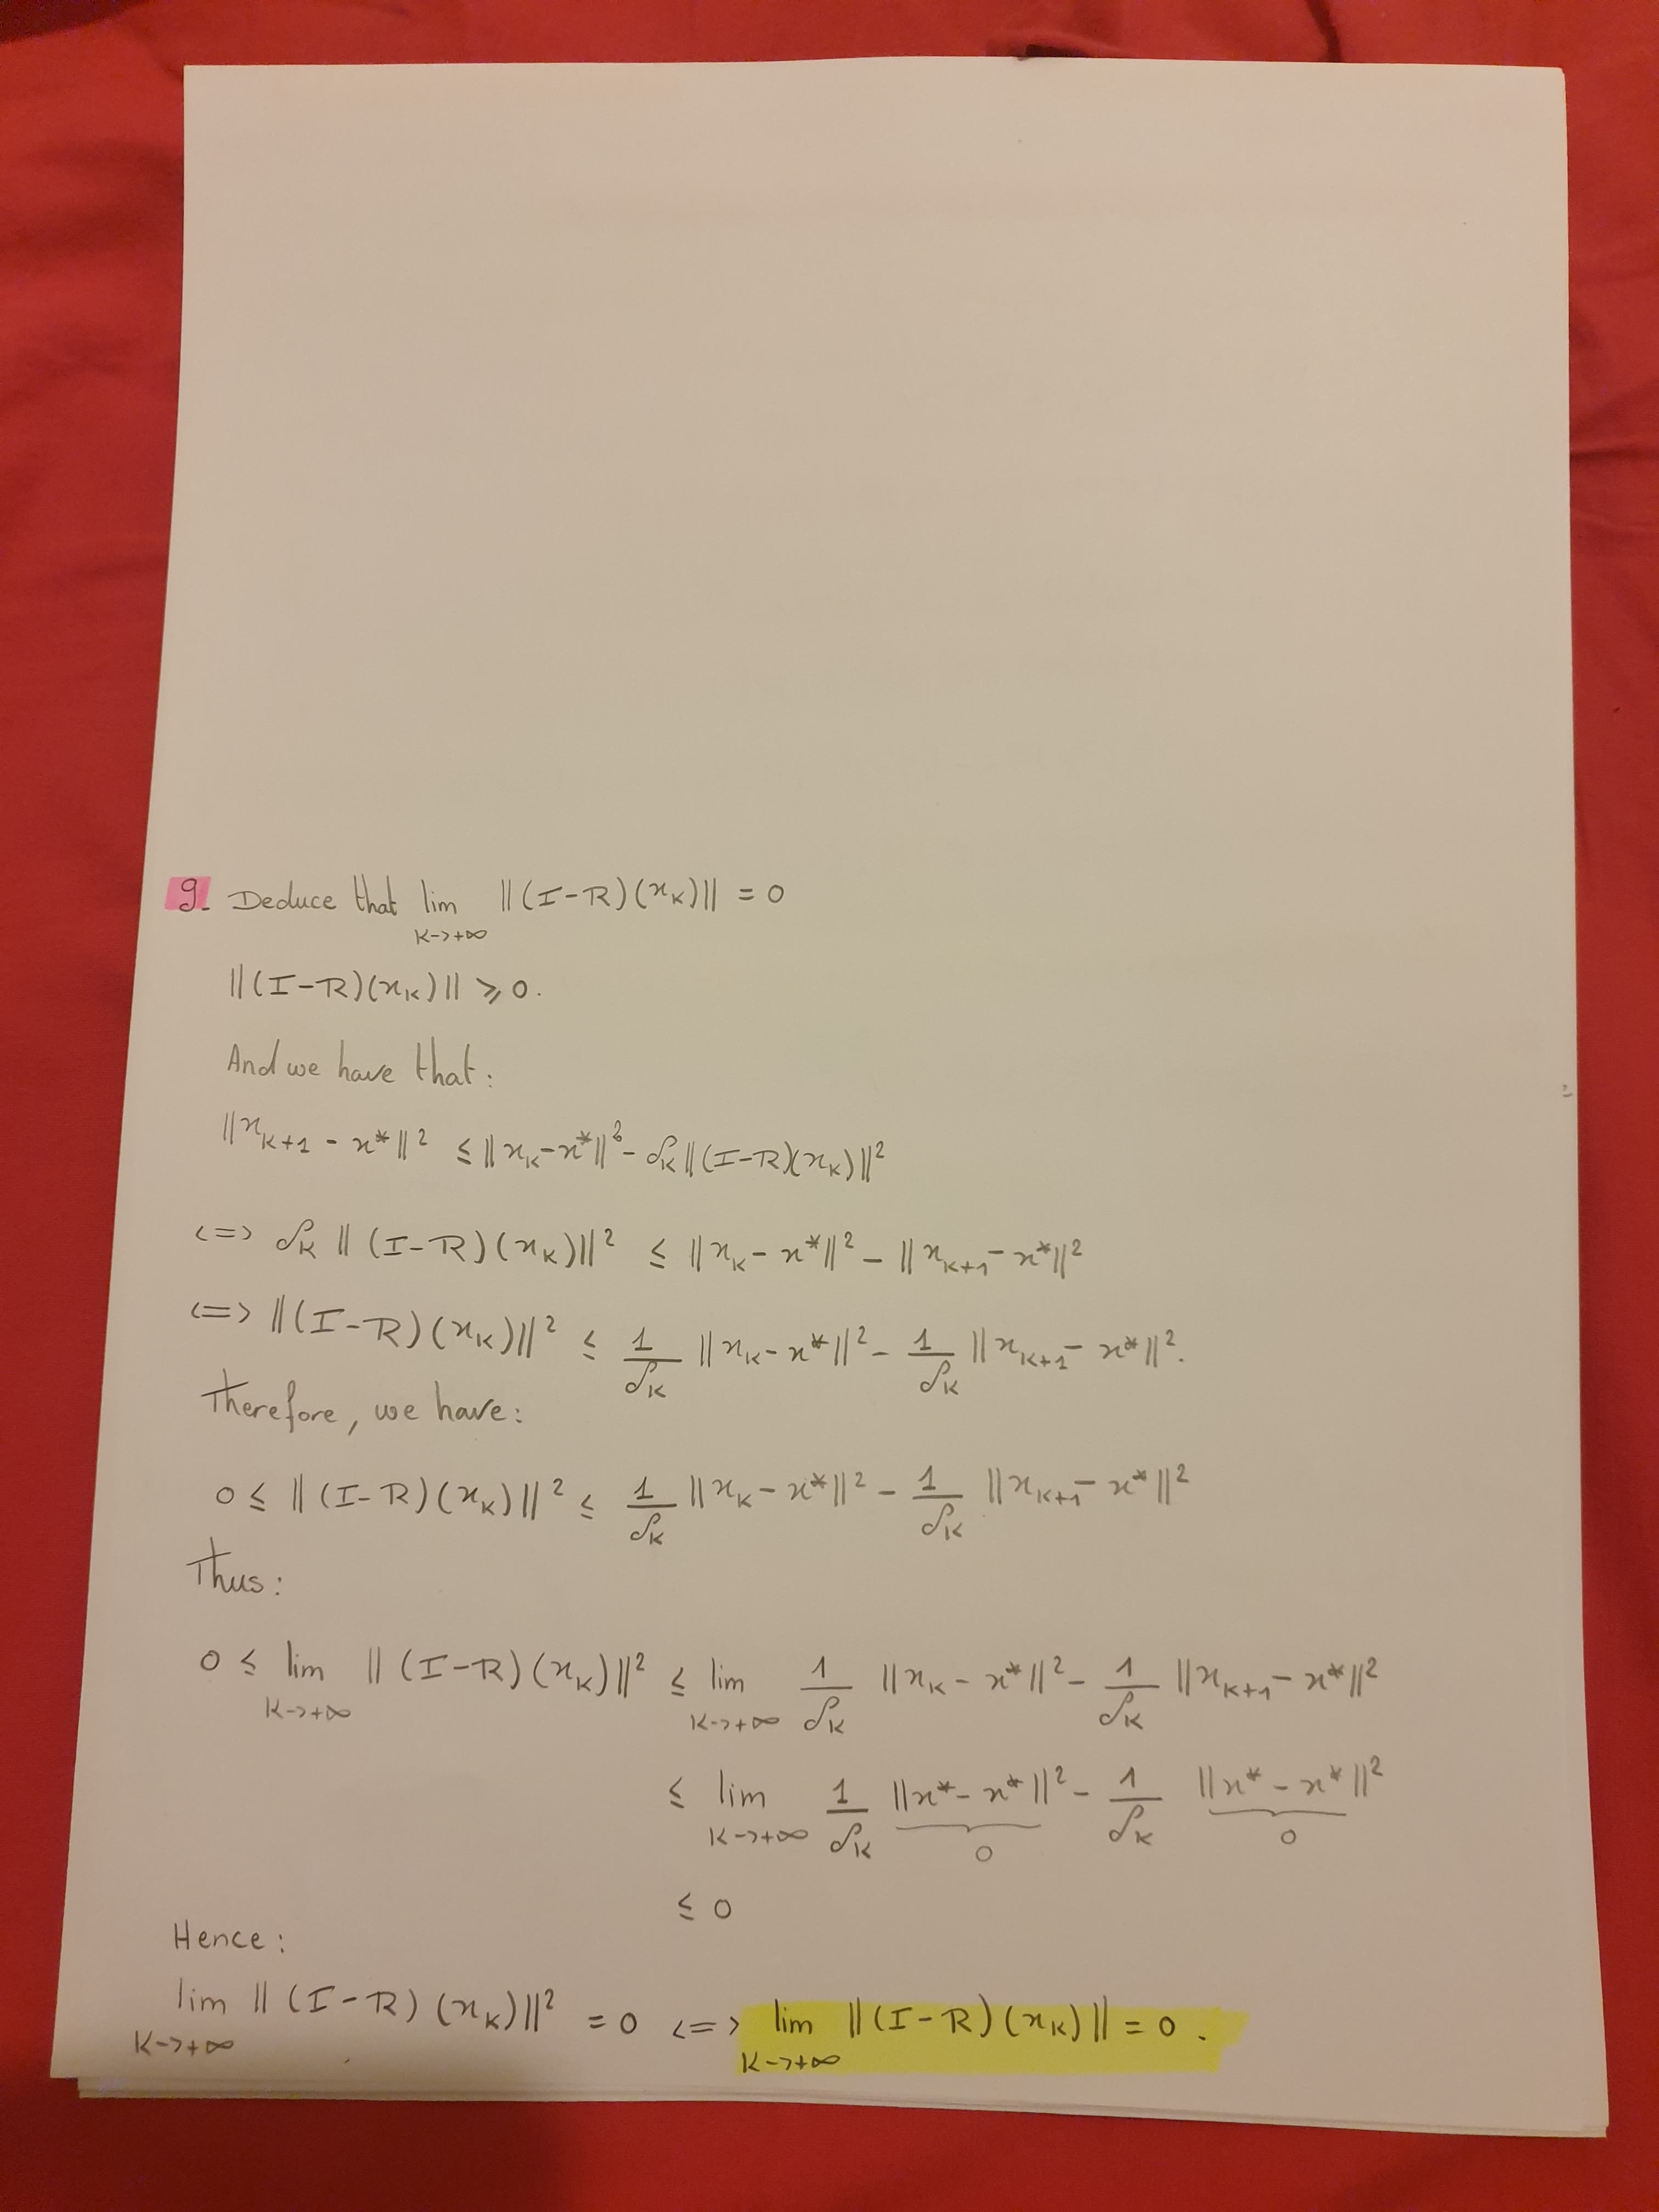 9. Deduce that lim ||(I-R)(x_K)|| = 0
K->+∞
||(I-R)(x_K)|| ⩾ 0.
And we have that:
||x_{K+1} - x*||² ≤ ||x_K - x*||² - δ_K ||(I-R)(x_K)||²
<=> δ_K ||(I-R)(x_K)||² ≤ ||x_K - x*||² - ||x_{K+1} - x*||²
<=> ||(I-R)(x_K)||² ≤ 1/δ_K ||x_K - x*||² - 1/δ_K ||x_{K+1} - x*||².
Therefore, we have:
0 ≤ ||(I-R)(x_K)||² ≤ 1/δ_K ||x_K - x*||² - 1/δ_K ||x_{K+1} - x*||²
Thus:
0 ≤ lim ||(I-R)(x_K)||² ≤ lim 1/δ_K ||x_K - x*||² - 1/δ_K ||x_{K+1} - x*||²
K->+∞ K->+∞
≤ lim 1/δ_K ||x* - x*||² - 1/δ_K ||x* - x*||²
K->+∞ 0 0
≤ 0
Hence:
lim ||(I-R)(x_K)||² = 0 <=> lim ||(I-R)(x_K)|| = 0.
K->+∞ K->+∞